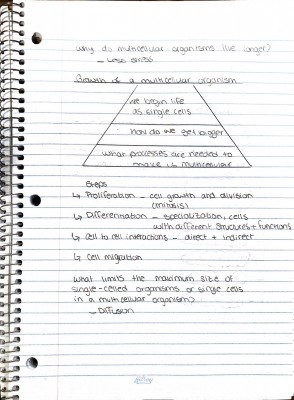 why do multicellular organisms live longer?
- Less stress
Growth of a multicellular organism
we begin life
as single cells
how do we get bigger
what processes are needed to
make us multicellular
Steps
↳ Proliferation - cell growth and division
(mitosis)
↳ Differentiation - specialization, cells
with different structures + functions
↳ Cell to cell interactions - direct + indirect
↳ Cell migration
what limits the maximum size of
single-celled organisms or single cells
in a multicellular organism?
- Diffusion
Hilroy